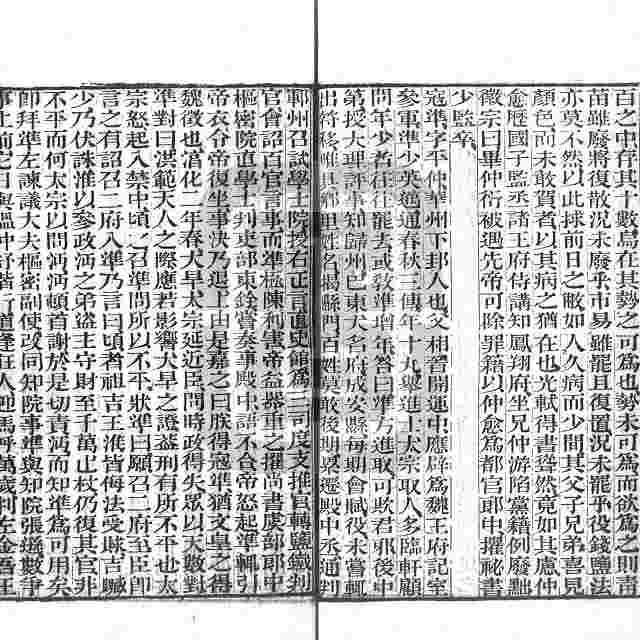 百之中存其十數焉在其勢之可爲而欲爲之則靑
苗雖廢將復散況未廢乎市易雖罷且復置況未罷乎役錢鹽法
亦莫不然以此捄前日之敝如人久病而少間其父子兄弟喜見
顏色而未敢賀者以其病之猶在也光軾得書聳然竟如其慮仲
愈歷國子監丞諸王府侍講知鳳翔府坐兄仲游陷黨籍例廢黜
徽宗曰畢仲衍被遇先帝可除罪籍以仲愈爲都官郎中擢祕書
少監卒
寇準字平仲華州下邽人也父相晉開運中應辟爲魏王府記室
參軍準少英邁通春秋三傳年十九舉進士太宗取人多臨軒顧
問年少者往往罷去或敎準增年答曰準方進取可欺君邪後中
第授大理評事知歸州巴東大名府成安縣每期會賦役未嘗輒
出符移唯具鄉里姓名揭縣門百姓莫敢後期累遷殿中丞通判
鄆州召試學士院授右正言直史館爲三司度支推官轉鹽鐵判
官會詔百官言事而準極陳利害帝益器重之擢尚書虞部郎中
樞密院直學士判吏部東銓嘗奏事殿中語不合帝怒起準輒引
帝衣令帝復坐事決乃退上由是嘉之曰朕得寇準猶文皇之得
魏徵也淳化二年春大旱太宗延近臣問時政得失眾以天數對
準對曰洪範天人之際應若影響大旱之證蓋刑有所不平也太
宗怒起入禁中頃之召準問所以不平狀準曰願召二府至臣卽
言之有詔召二府入準乃言曰頃者祖吉王淮皆侮法受賕吉贓
少乃伏誅淮以參政沔之弟盜主守財至千萬止杖仍復其官非
不平而何太宗以問沔沔頓首謝於是切責沔而知準爲可用矣
卽拜準左諫議大夫樞密副使改同知院事準與知院張遜數爭
事上前它日與溫仲舒偕行道逢狂人迎馬呼萬歲判左金吾王